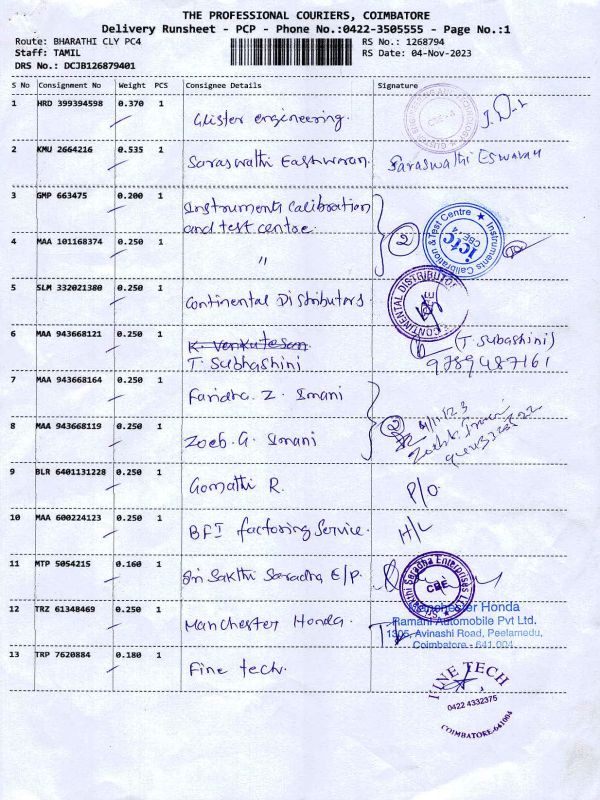 THE PROFESSIONAL COURIERS, COIMBATORE
Delivery Runsheet - PCP - Phone No.:0422-3505555 - Page No.:1
Route: BHARATHI CLY PC4
Staff: TAMIL
DRS No.: DCJB126879401
RS No.: 1268794
RS Date: 04-Nov-2023
S No Consignment No Weight PCS Consignee Details Signature
1 HRD 399394598 0.370 1 Glister engineering.
CBE-4
2 KMU 2664216 0.535 1 Saraswathi Eashwaran. Saraswathi Eswaran
3 GMP 663475 0.200 1 Instruments Calibration
and test centre.
2
Instruments Calibration & Test Centre
ictc
CBE-4
4 MAA 101168374 0.250 1 "
5 SLM 332021380 0.250 1 Continental Distributors.
CONTINENTAL DISTRIBUTOR
CBE
6 MAA 943668121 0.250 1 K. Venkatesan
T. Subhashini
(T. Subashini)
9789487161
7 MAA 943668164 0.250 1 Faridha. Z. Imani
8 MAA 943668119 0.250 1 Zoeb. G. Imani
2
4/11/23
Zoeb. Imani
9 BLR 6401131228 0.250 1 Gomathi R. P/O
10 MAA 600224123 0.250 1 BFI factoring Service. H/L
11 MTP 5054215 0.160 1 Sri Sakthi Saradha E/P.
Sri Sakthi Saradha Enterprises
CBE
12 TRZ 61348469 0.250 1 Manchester Honda.
Manchester Honda
Ramani Automobile Pvt Ltd.
1305, Avinashi Road, Peelamedu,
Coimbatore - 641 004
13 TRP 7620884 0.180 1 Fine tech.
FINE TECH
0422 4332375
COIMBATORE-641004